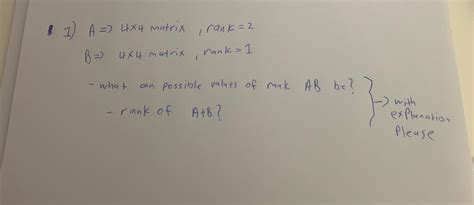 1) A => 4x4 matrix , rank = 2
B => 4x4 matrix , rank = 1
- what can possible values of rank AB be?
- rank of A+B?
-> with explanation please